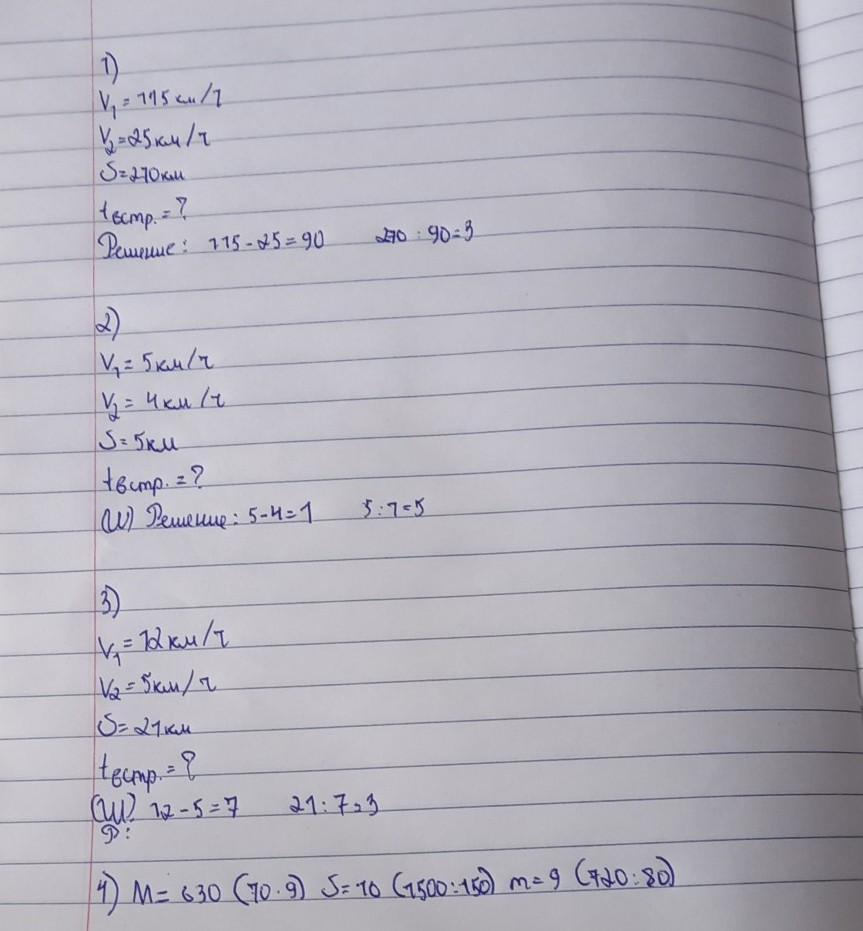 1)
V₁ = 115 км/ч
V₂ = 25 км/ч
S = 270 км
tвстр. = ?
Решение: 115 - 25 = 90 270 : 90 = 3
2)
V₁ = 5 км/ч
V₂ = 4 км/ч
S = 5 км
tвстр. = ?
(Ш) Решение: 5 - 4 = 1 5 : 1 = 5
3)
V₁ = 12 км/ч
V₂ = 5 км/ч
S = 21 км
tвстр. = ?
(Ш) 12 - 5 = 7 21 : 7 = 3
Р:
4) M = 630 (70 · 9) S = 10 (1500 : 150) m = 9 (720 : 80)